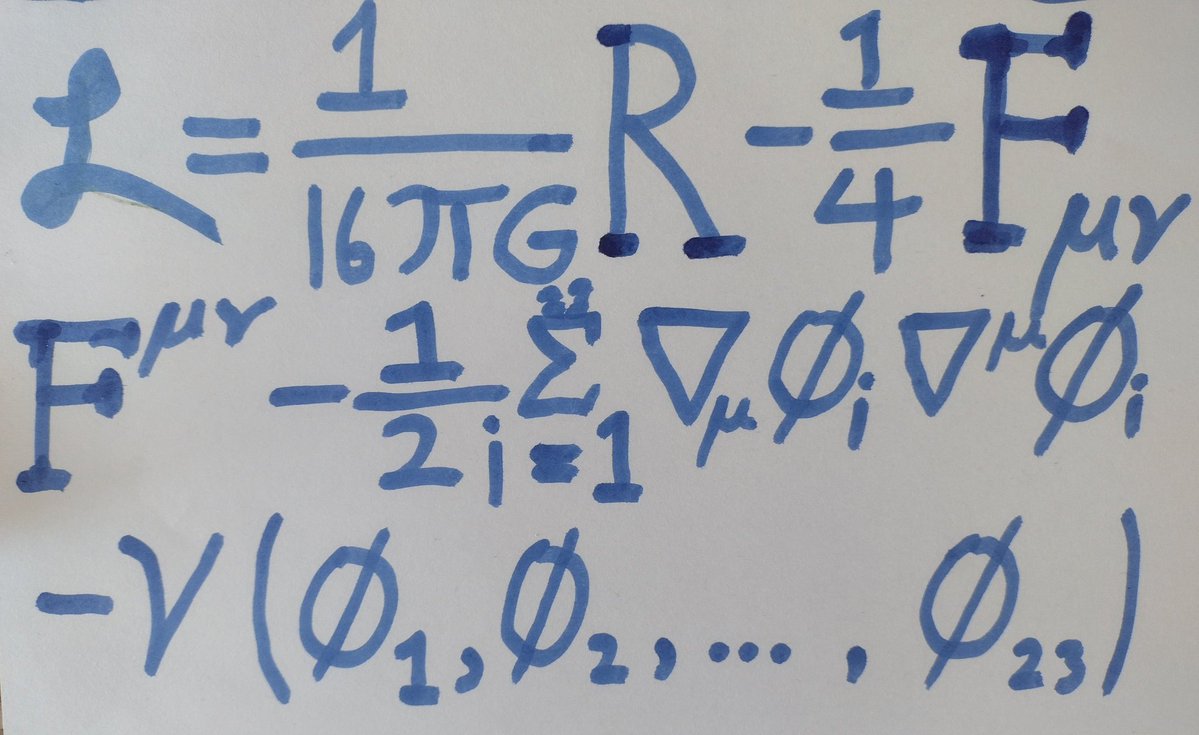 ℒ = 1/(16πG) R - 1/4 F_μν
F^μν - 1/2 Σ_{i=1}^{23} ∇_μ ϕ_i ∇^μ ϕ_i
- V(ϕ_1, ϕ_2, ..., ϕ_23)